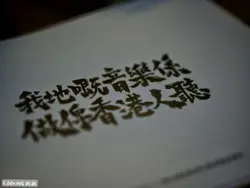 我地嘅音樂係
做俾香港人聽